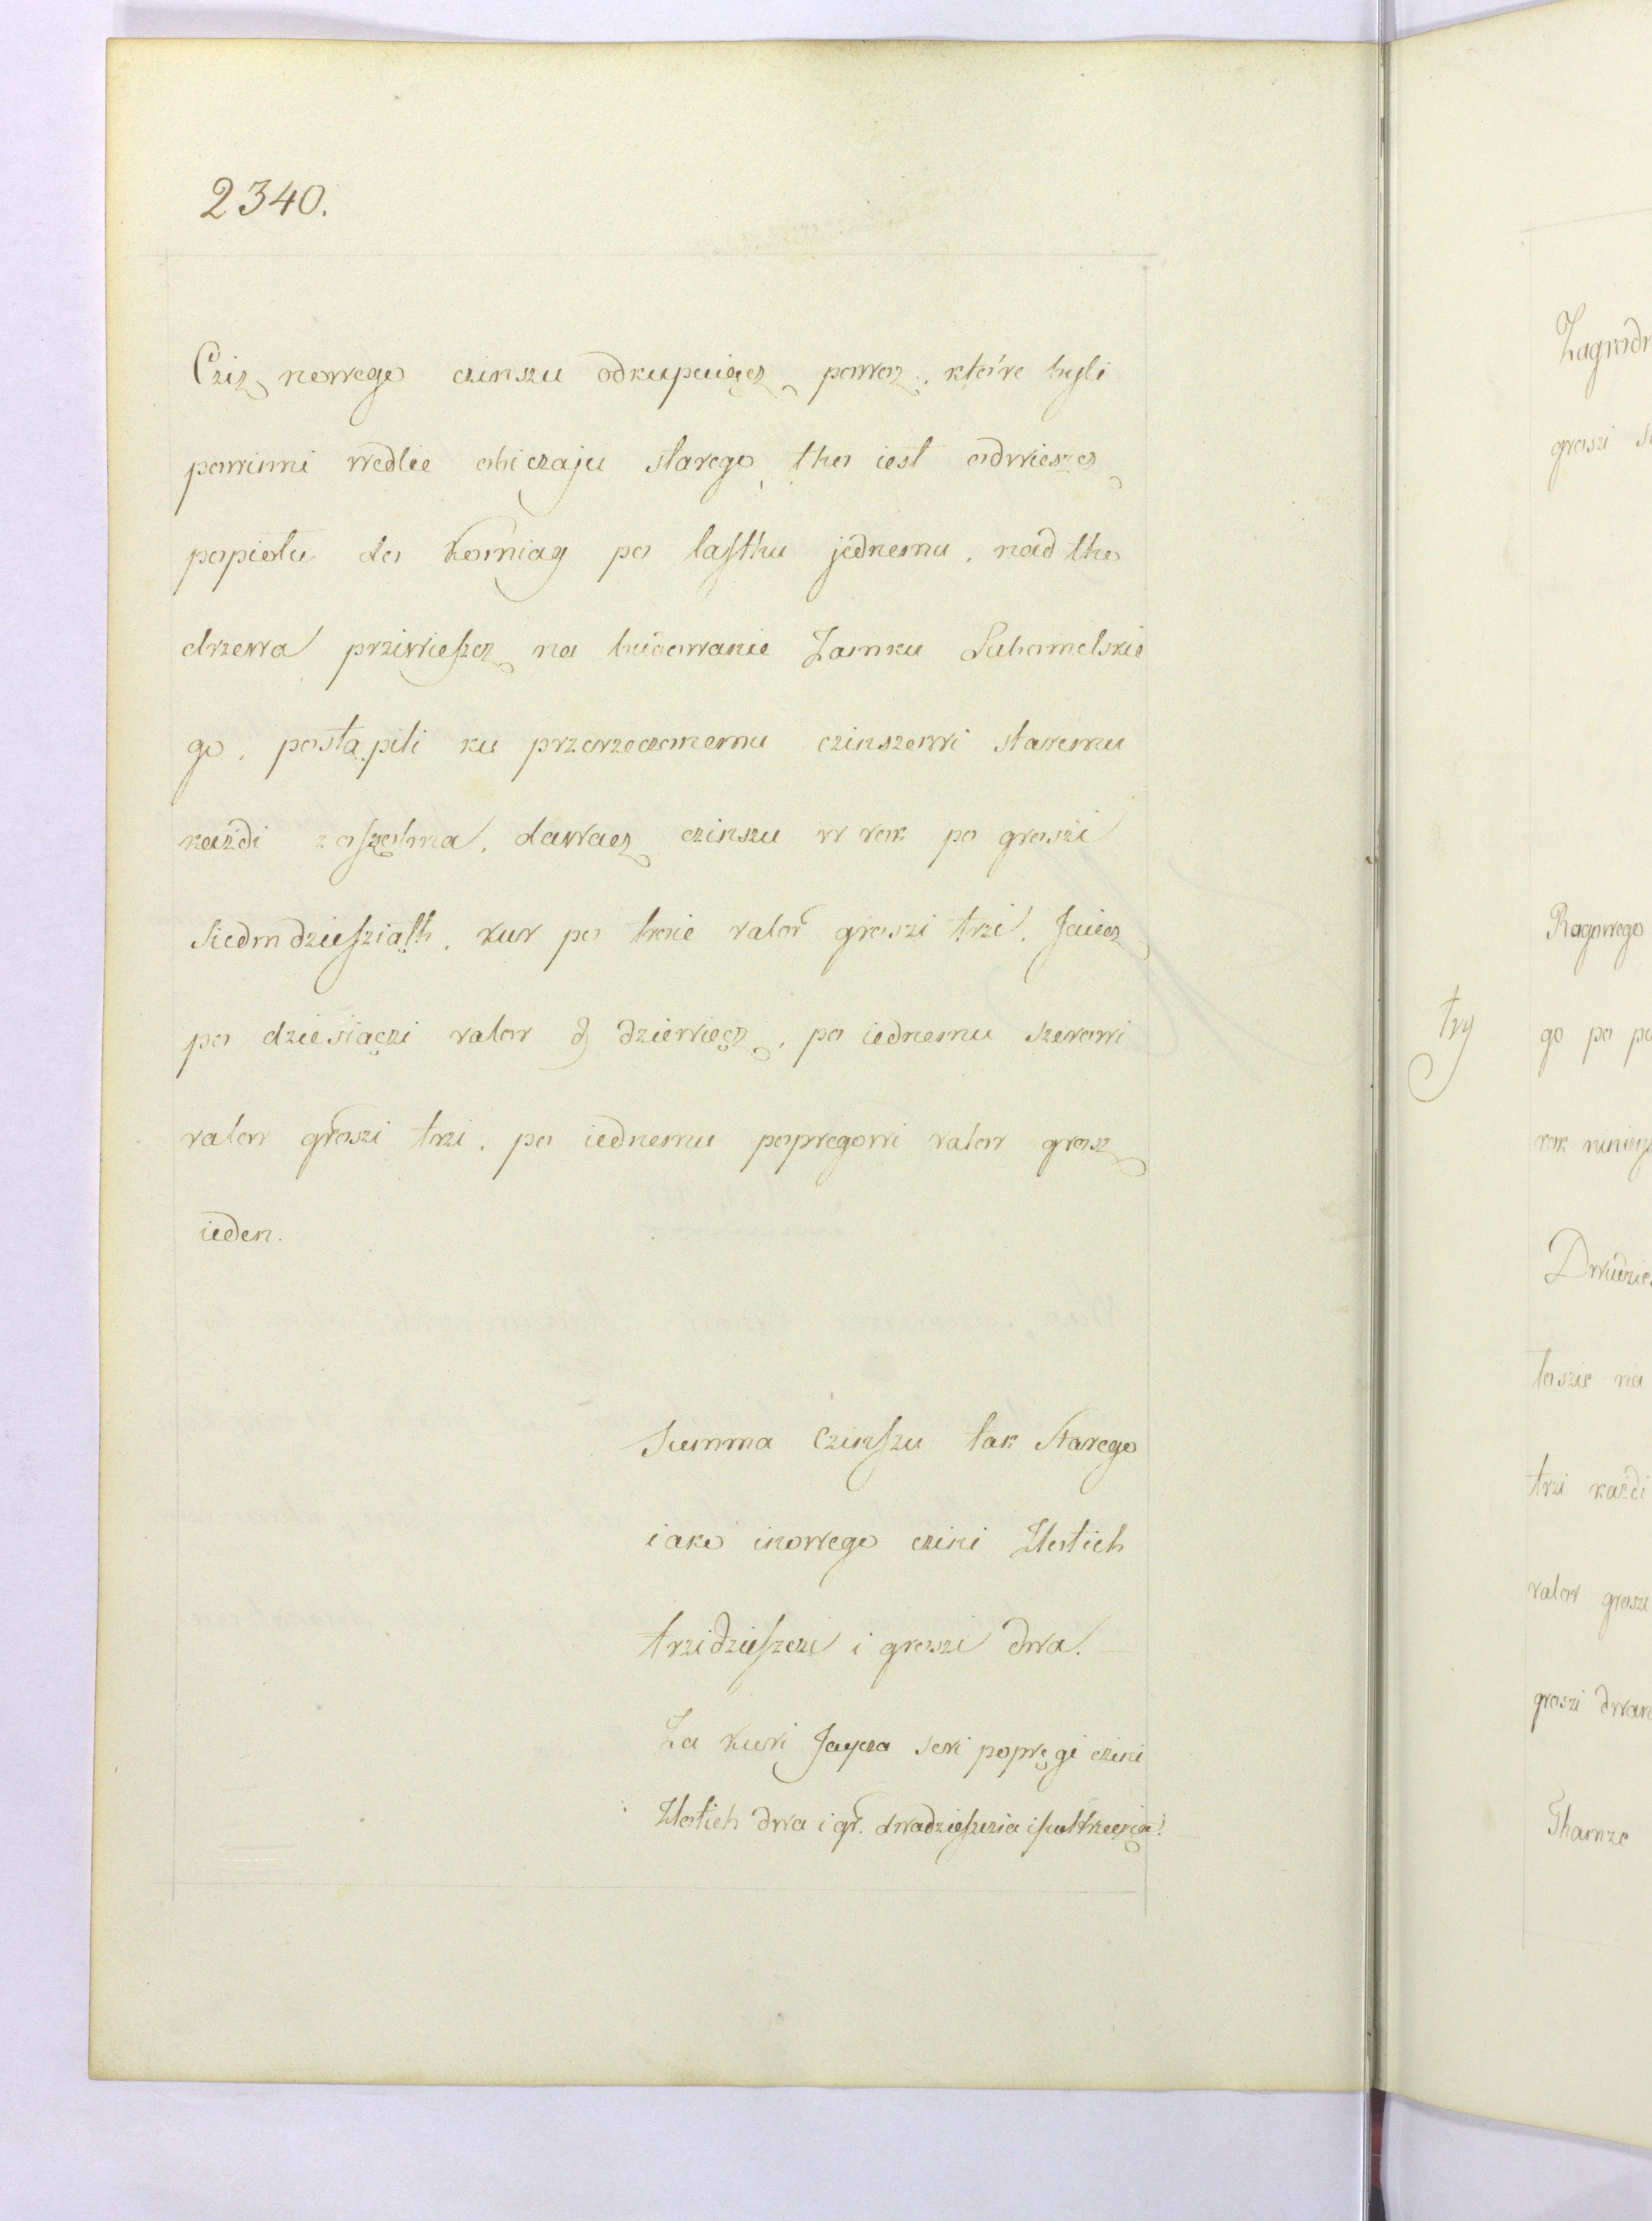 2340.
Cziz nowego czinszu odkupuiącz powoz, które byli
powinni wedlie obiczaju starego, tho iest odwieszcz
popiołu do Komiag po lasthu jednemu, nad tho
drzewa prziwieszcz na budowanie Zamku Lubomelskie
go, postąpili ku przerzeczonemu czinszewi staremu
każdi zoszobna, dawacz czinszu w rok po groszi
siedmdziesziąth, kur po troie valor groszi trzi, Jaiecz
po dziesiączi valor ₰ dziewięcz, po iednemu szerowi
valor groszi trzi, po iednemu popregowi valor grosz
ieden.
Summa Czinszu tak Starego
iako inowego czini Złotich
trzidzieszczi i groszi dwa.
Za kuri Jaycza seri popręgi czini
Złotich dwa i gr. dwadzieszczia i pultrzecią.
Zagrodn
groszi
Rogowego
try
go po
rok
Dwudzies
na
trzi każdi
valor groszi
groszi dwan
Thamze